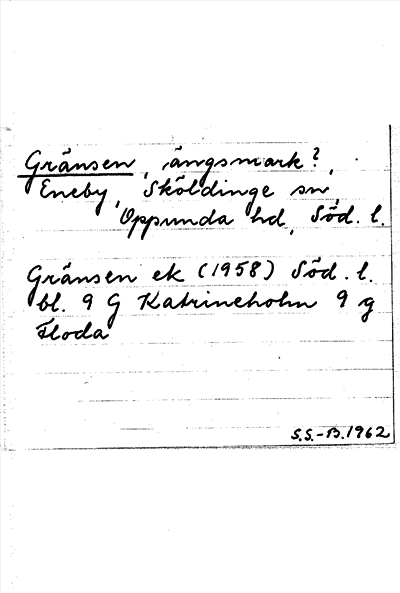 Gränsen, ängsmark?,
Eneby, Sköldinge sn,
Oppunda hd, Söd. l.
Gränsen ek (1958) Söd. l.
bl. 9 G Katrineholm 9 g
Floda
S.S.-B. 1962